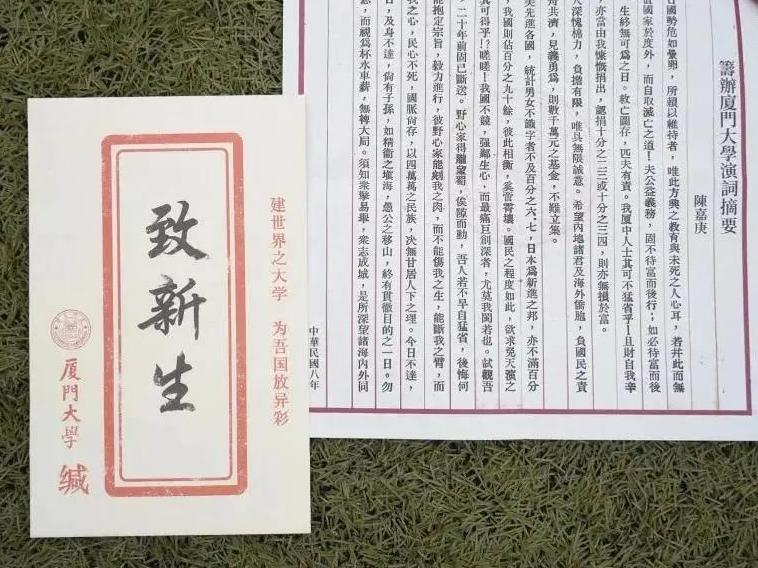 籌辦廈門大學演詞摘要
陳嘉庚
國勢危如壘卵,所賴以維持者,唯此方興之教育與未死之人心耳,若并此而無
國家於度外,而自取滅亡之道!夫公益義務,固不待富而後行;如必待富而後
生終無可爲之日。救亡圖存,匹夫有責。我廈中人士其可不猛省乎!且財自我辛
亦當由我慷慨捐出,認捐十分之二三或十分之三四,則亦無損於富。
人深愧棉力,負擔有限,唯具無限誠意。希望內地諸君及海外僑胞,負國民之責
舟共濟,見義勇爲,則數千萬元之基金,不難立集。
美先進各國,統計男女不識字者不及百分之六、七,日本爲新進之邦,亦不滿百分
我國則佔百分之九十餘,彼此相衡,奚啻霄壤。國民之程度如此,欲求免天演之
其可得乎!?嗟嗟!我國不競,強鄰生心,而最痛巨創深者,尤莫我閩若也。試觀吾
二十年前固已斷送。野心家得隴望蜀,俟隙而動,吾人若不早自猛省,後悔何
能抱定宗旨,毅力進行,彼野心家能剜我之肉,而不能傷我之生,能斷我之臂,而
我之心,民心不死,國脈尚存,以四萬萬之民族,決無甘居人下之理。今日不達,
日,及身不達,尚有子孫,如精衛之塡海,愚公之移山,終有貫徹目的之一日。勿
而視爲杯水車薪,無裨大局。須知衆擎易舉,衆志成城,是所深望諸海內外同
中華民國八年
建世界之大学 为吾国放异彩
致新生
厦門大學 缄